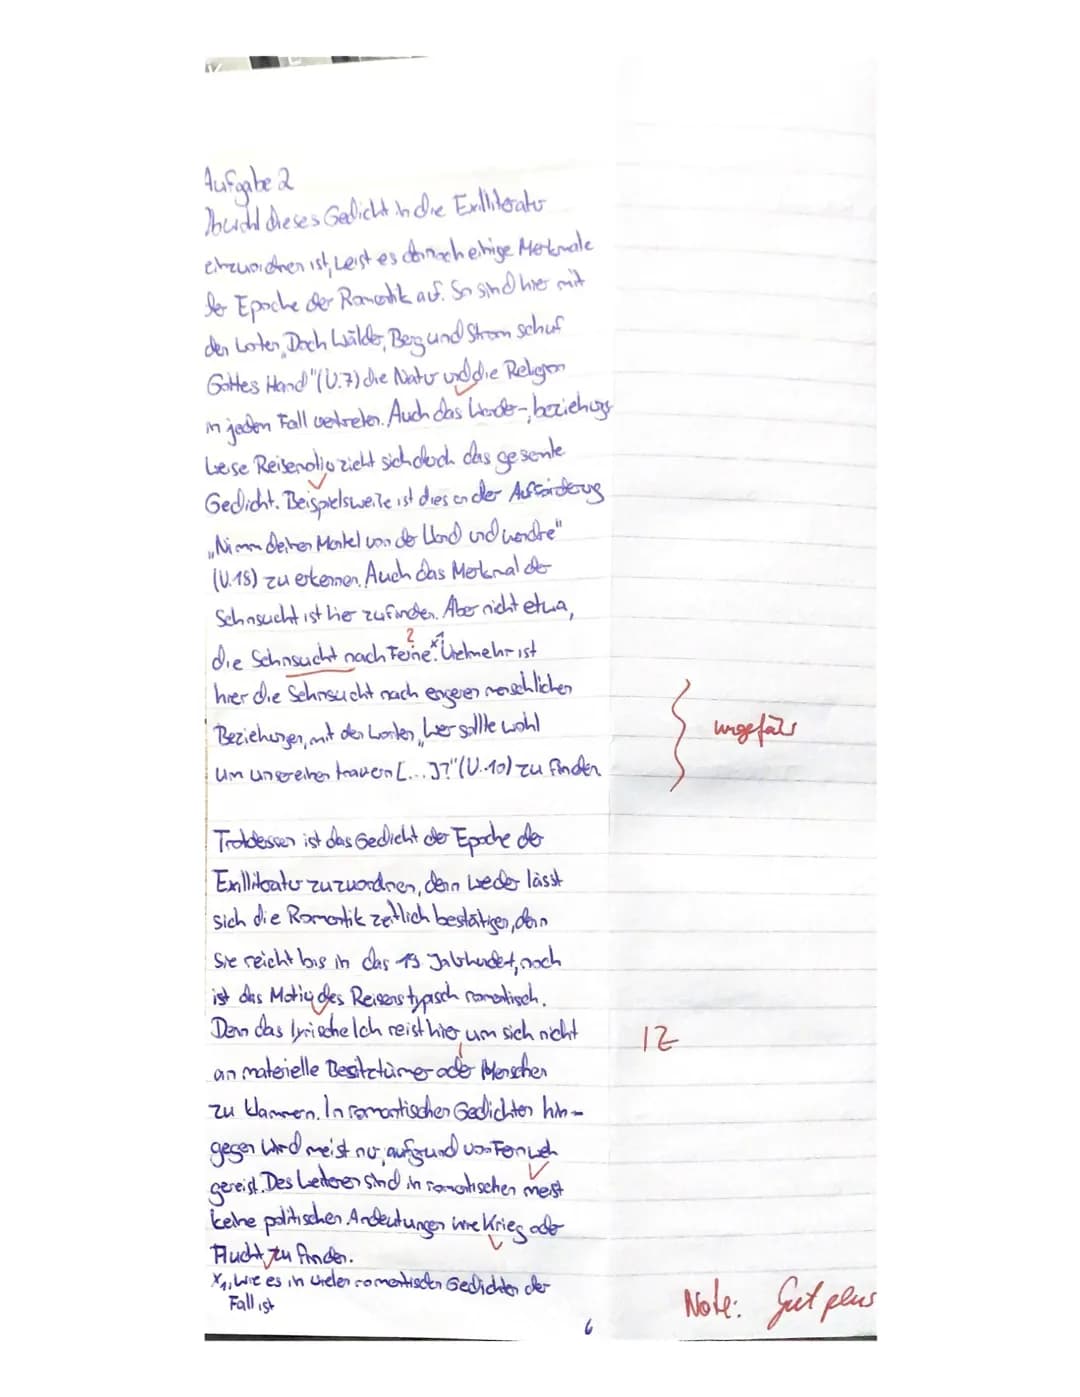 Aufgabe 2
Obwohl dieses Gedicht in die Exilliteratur
einzuordnen ist, weist es dennoch einige Merkmale
der Epoche der Romantik auf. So sind hier mit
den Worten „Doch Wälder, Berg und Strom schuf
Gottes Hand" (V.7) die Natur und die Religion
in jedem Fall vertreten. Auch das Wander-, beziehungs
weise Reisemotiv zieht sich durch das gesamte
Gedicht. Beispielsweise ist dies an der Aufforderung
„Nimm deinen Mantel von der Wand und wandre"
(V.18) zu erkennen. Auch das Merkmal der
Sehnsucht ist hier zu finden. Aber nicht etwa,
?
die Sehnsucht nach Ferne x1. Vielmehr ist
hier die Sehnsucht nach engeren menschlichen
Beziehungen, mit den Worten „wer sollte wohl
ungefähr
um unsereinen trauern [...]?" (V.10) zu finden
Trotdessen ist das Gedicht der Epoche der
Exilliteratur zuzuordnen, denn weder lässt
sich die Romantik zeitlich bestätigen, denn
sie reicht bis in das 19 Jahrhundert, noch
ist das Motiv des Reisens typisch romantisch.
Denn das lyrische Ich reist hier um sich nicht
IZ
an materielle Besitztümer oder Menschen
zu klammern. In romantischen Gedichten hin-
gegen wird meist nur aufgrund von Fernweh
gereist. Des Weiteren sind in romantischen meist
keine politischen Andeutungen wie Krieg oder
Flucht zu finden.
x1, wie es in vielen romantischen Gedichten der
Fall ist
Note: Gut plus
6